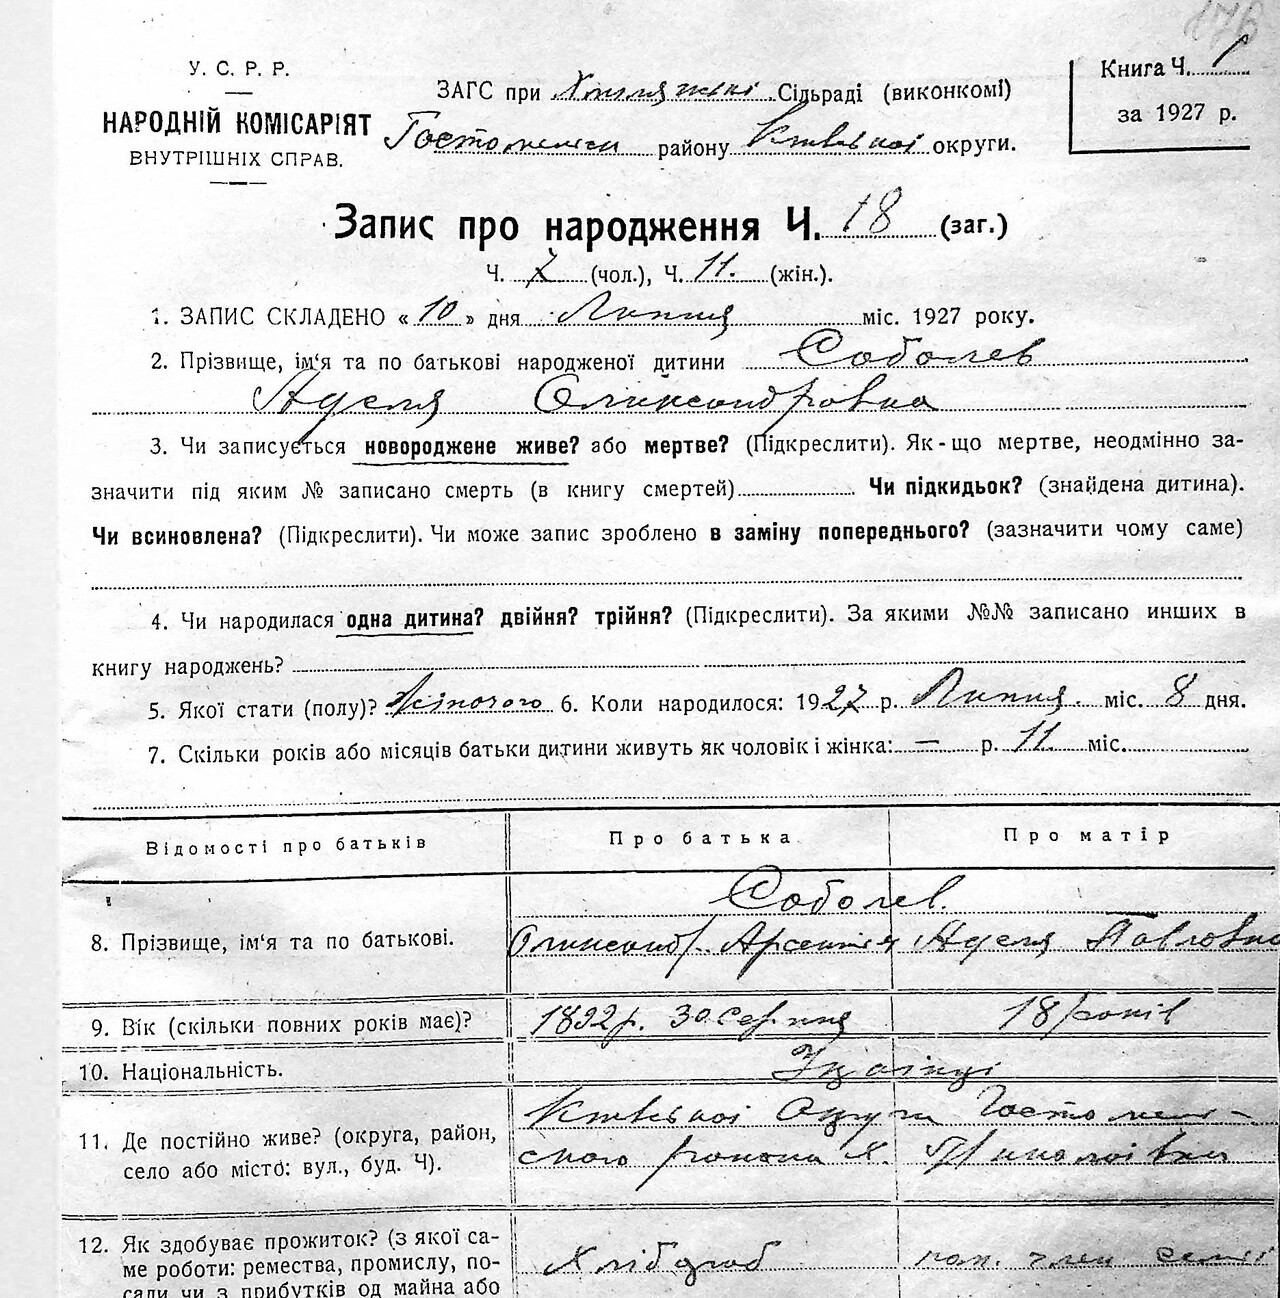 176
У. С. Р. Р.
НАРОДНІЙ КОМІСАРІЯТ
ВНУТРІШНІХ СПРАВ.
ЗАГС при Сільраді (виконкомі)
району Київської округи.
Книга Ч. 1
за 1927 р.
Запис про народження Ч. 18 (заг.)
Ч. 7 (чол.), Ч. 11. (жін.).
1. ЗАПИС СКЛАДЕНО « 10 » дня Липня міс. 1927 року.
2. Прізвище, ім‘я та по батькові народженої дитини Соболев
Аделя Олександровна
3. Чи записується новороджене живе? або мертве? (Підкреслити). Як-що мертве, неодмінно за-
значити під яким № записано смерть (в книгу смертей) Чи підкидьок? (знайдена дитина).
Чи всиновлена? (Підкреслити). Чи може запис зроблено в заміну попереднього? (зазначити чому саме)
4. Чи народилася одна дитина? двійня? трійня? (Підкреслити). За якими №№ записано инших в
книгу народжень?
5. Якої стати (полу)? Жіночого 6. Коли народилося: 1927 р. Липня. міс. 8 дня.
7. Скільки років або місяців батьки дитини живуть як чоловік і жінка: — р. 11. міс.
Відомості про батьків
Про батька
Про матір
8. Прізвище, ім‘я та по батькові.
Соболев.
Олександр. Арсентія Аделя Павловна
9. Вік (скільки повних років має)?
1892 р. 30 серпня
18 років
10. Національність.
11. Де постійно живе? (округа, район,
село або місто: вул., буд. Ч).
Київської Округи Гостомель-
ського району
12. Як здобуває прожиток? (з якої са-
ме роботи: ремества, промислу, по-
сади чи з прибутків од майна або
Хлібороб
член семьї